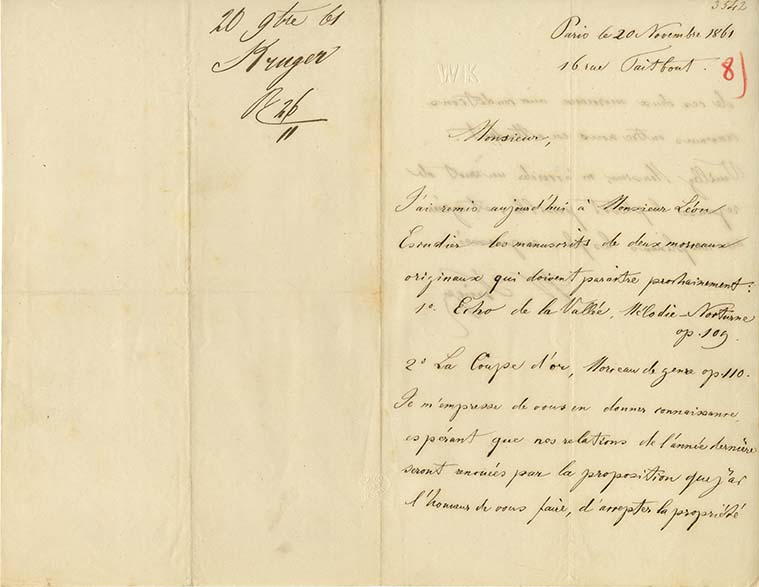 20 9bre 61
Kruger
R 26
11
3542
Paris le 20 Novembre 1861
16 rue Taitbout.
8)
WIK
Monsieur,
J'ai remis aujourd'hui à Monsieur Léon
Escudier les manuscrits de deux morceaux
originaux qui doivent paraître prochainement:
1º. Echo de la Vallée, Mélodie-Nocturne
op. 109.
2º La Coupe d'or, Morceau de genre op. 110.
Je m'empresse de vous en donner connaissance,
espérant que nos relations de l'année dernière
seront renouées par la proposition que j'ai
l'honneur de vous faire, d'accepter la propriété